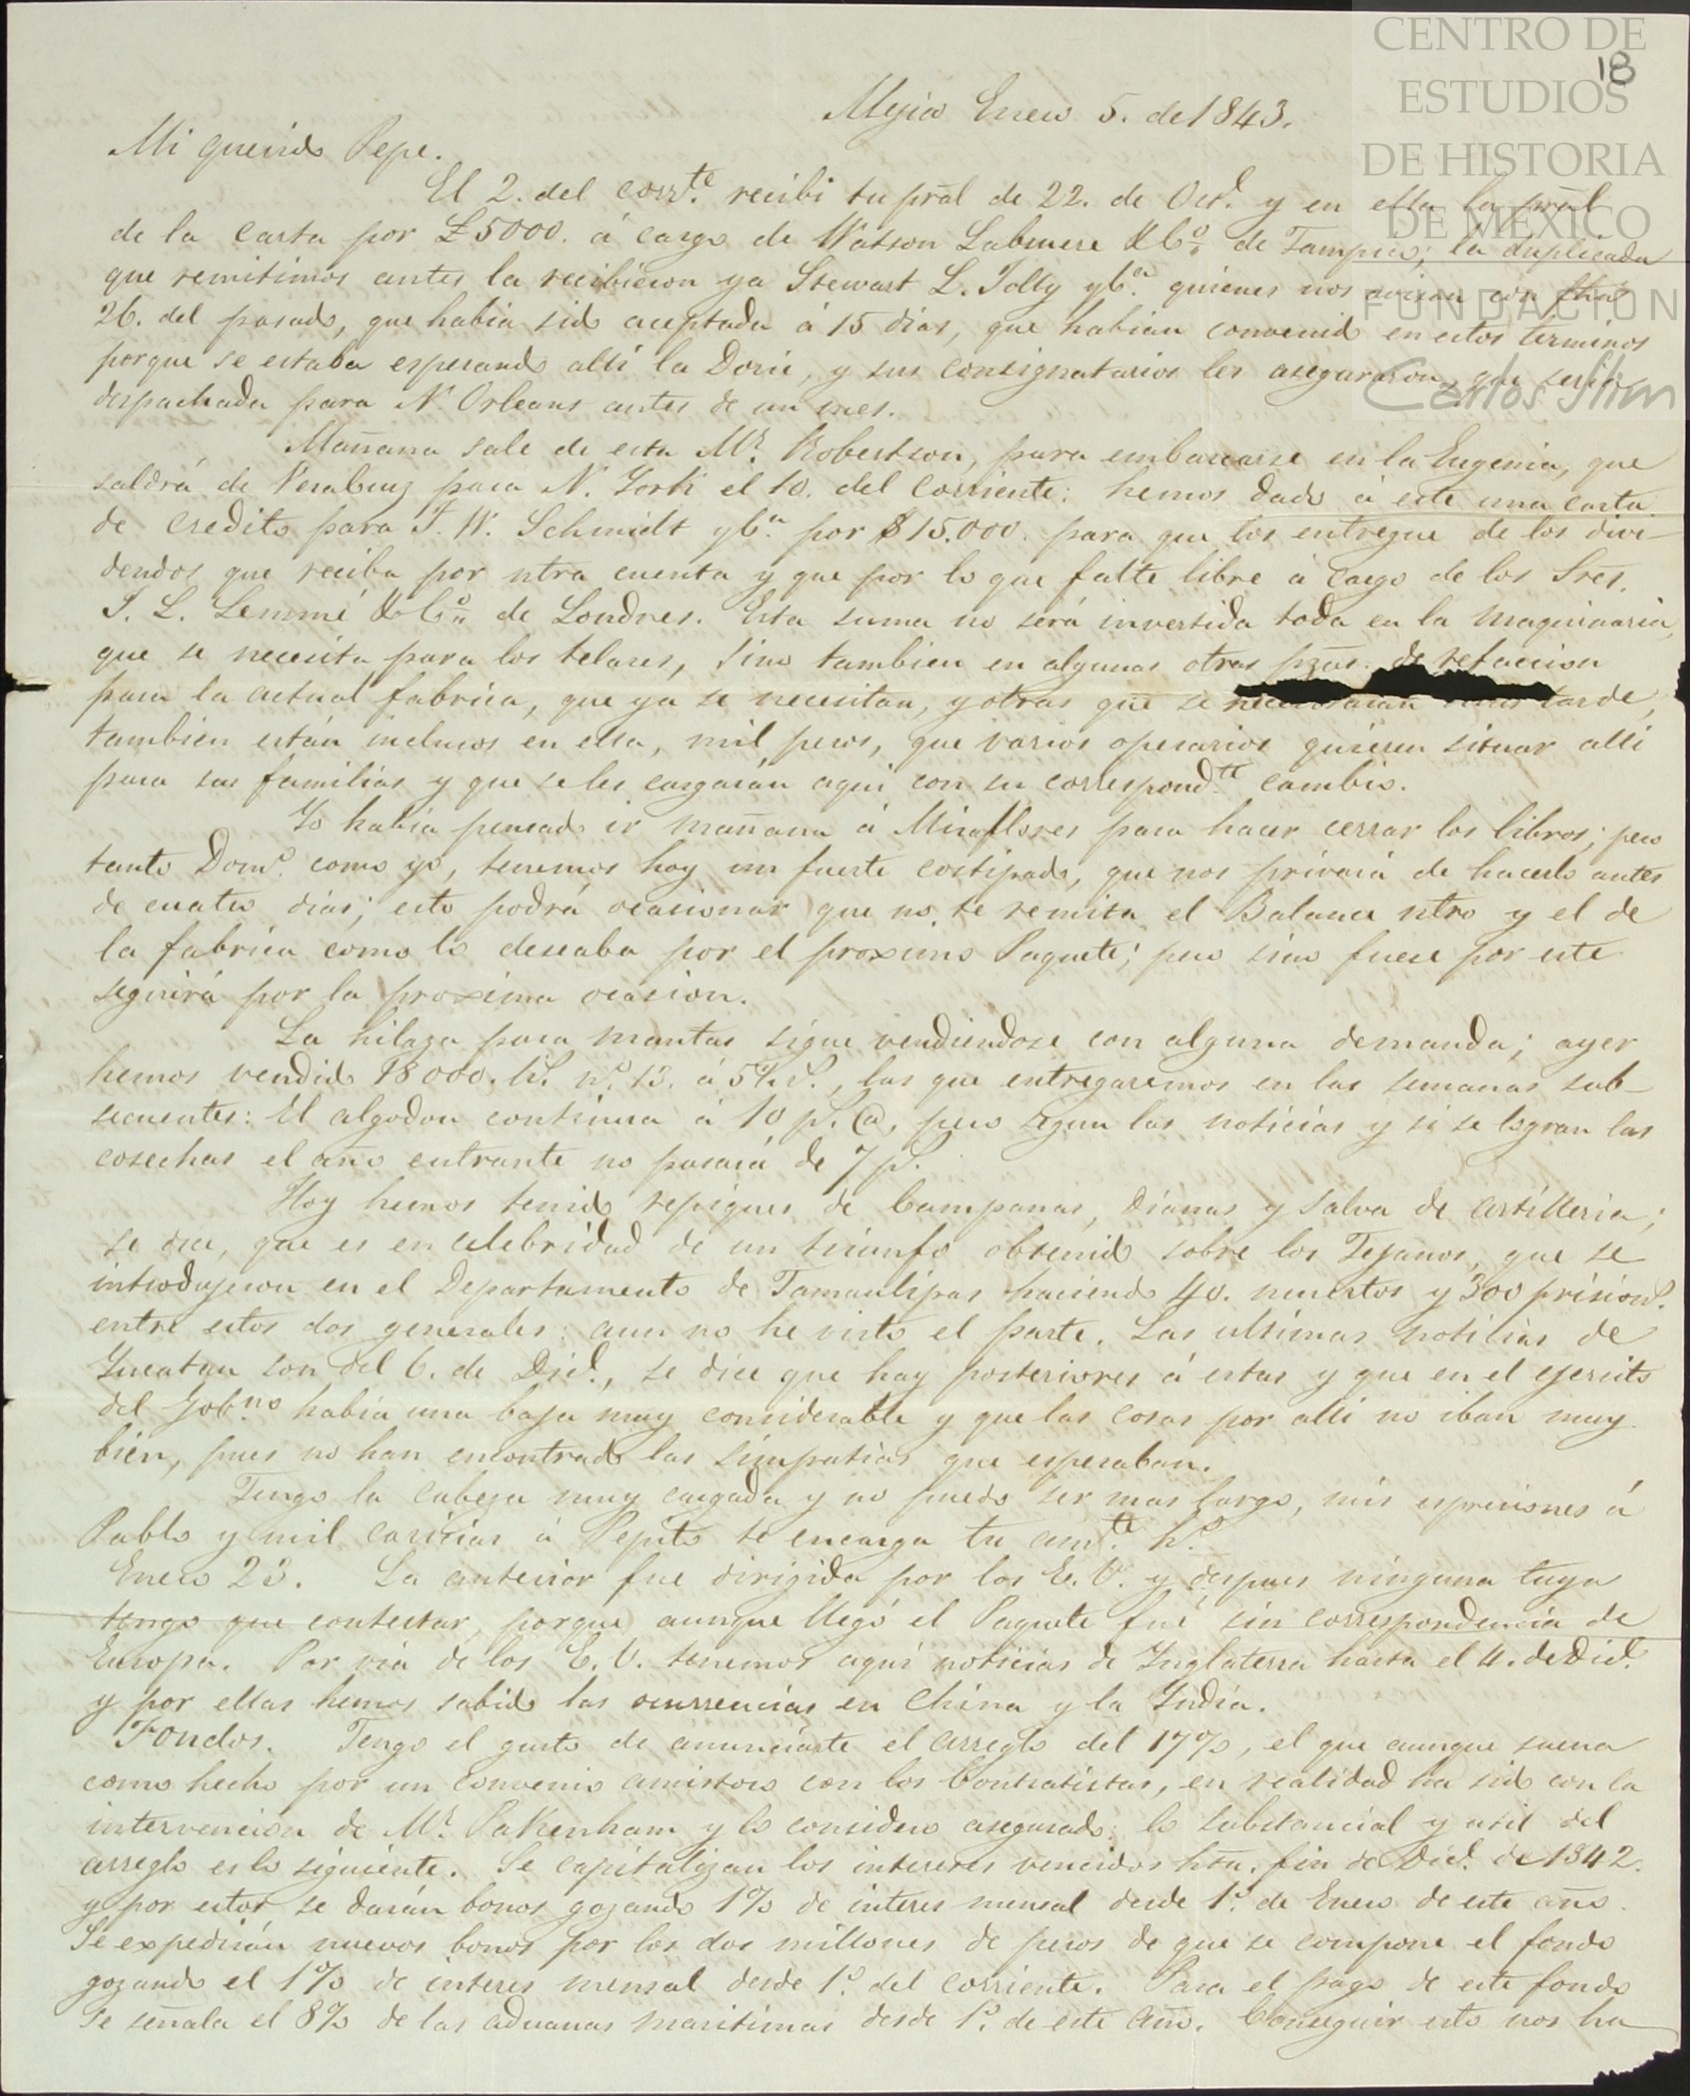 CENTRO DE
ESTUDIOS
DE HISTORIA
DE MÉXICO
FUNDACIÓN
Carlos Slim
18
Mejico Enero 5. de 1843.
Mi querido Pepe.
El 2. del corrte. recibi tu pral de 22. de Oct.e y en ella la pral
de la carta por £5000. á cargo de Watson Labmere & Co. de Tampico; la duplicada
que remitimos antes la recibieron ya Stewart L. Jolly y Ca. quienes nos avisan con fha
26. del pasado, que habia sido aceptada á 15 dias, que habian convenido en estos terminos
porque se estaba esperando alli la Doric, y sus consignatarios les aseguraron, que seria
despachada para N. Orleans antes de un mes.
Mañana sale de esta Mr. Robertson, para embarcarse en la Eugenia, que
saldrá de VeraCruz para N. York el 10. del corriente: hemos dado á este una carta
de credito para J. W. Schmidt y Ca. por $15.000. para que los entregue de los divi-
dendos que reciba por ntra cuenta y que por lo que falte libre á cargo de los Sres.
J. L. Lemmé & Co. de Londres. Esta suma no será invertida toda en la maquinaria,
que se necesita para los telares, sino tambien en algunas otras pzas. de refaccion
para la actual fabrica, que ya se necesitan, y otras que se necesitaran mas tarde,
tambien están inclusos en ella, mil pesos, que varios operarios quieren situar alli
para sus familias y que se les cargarán aqui con su correspondte. cambio.
Yo habia pensado ir mañana á Miraflores para hacer cerrar los libros; pero
tanto Domo. como yo, tenemos hoy un fuerte costipado, que nos privará de hacerlo antes
de cuatro dias; esto podrá ocasionar que no te remita el Balance ntro y el de
la fabrica como lo deseaba por el proximo Paquete; pero sino fuese por este
seguirá por la proxima ocasion.
La hilaza para mantas sigue vendiendose con alguna demanda; ayer
hemos vendido 18000. lbs. no. 13. á 5¾ rs., las que entregaremos en las semanas sub-
secuentes: El algodon continua á 10 p. @, pero segun las noticias y si se logran las
cosechas el año entrante no pasará de 7 ps.
Hoy hemos tenido repiques de Campanas, Dianas y Salva de artilleria;
se dice, que es en celebridad de un triunfo obtenido sobre los Tejanos, que se
introdujeron en el Departamento de Tamaulipas haciendo 40. muertos y 300 prision.s
entre estos dos generales: aun no he visto el parte. Las ultimas noticias de
Yucatan son del 6. de Dice., se dice que hay posteriores á estas y que en el ejercito
del Gobno. habia una baja muy considerable y que las cosas por alli no iban muy
bien, pues no han encontrado las simpatias que esperaban.
Tengo la cabeza muy cargada y no puedo ser mas largo, mis espresiones á
Pablo y mil caricias á Pepito te encarga tu amte. ho.
Enero 23. La anterior fue dirigida por los E. Us. y despues ninguna tuya
tengo que contestar, porque aunque llegó el Paquete fué sin correspondencia de
Europa. Por via de los E. U. tenemos aqui noticias de Inglaterra hasta el 4. de Dice.
y por ellas hemos sabido las ocurrencias en China y la India.
Fondos. Tengo el gusto de anunciarte el arreglo del 17%, el que aunque suena
como hecho por un convenio amistoso con los Contratistas, en realidad ha sido con la
intervencion de Mr. Pakenham y lo considero asegurado: lo substancial y util del
arreglo es lo siguiente. Se capitalizan los intereses vencidos hta. fin de Dice. de 1842.
y por estos se darán bonos gozando 1% de interes mensal desde 1o. de Enero de este año.
Se expedirán nuevos bonos por los dos millones de pesos de que se compone el fondo
gozando el 1% de interes mensal desde 1o. del corriente. Para el pago de este fondo
se señala el 8% de las aduanas maritimas desde 1o. de este año. Conseguir esto nos ha